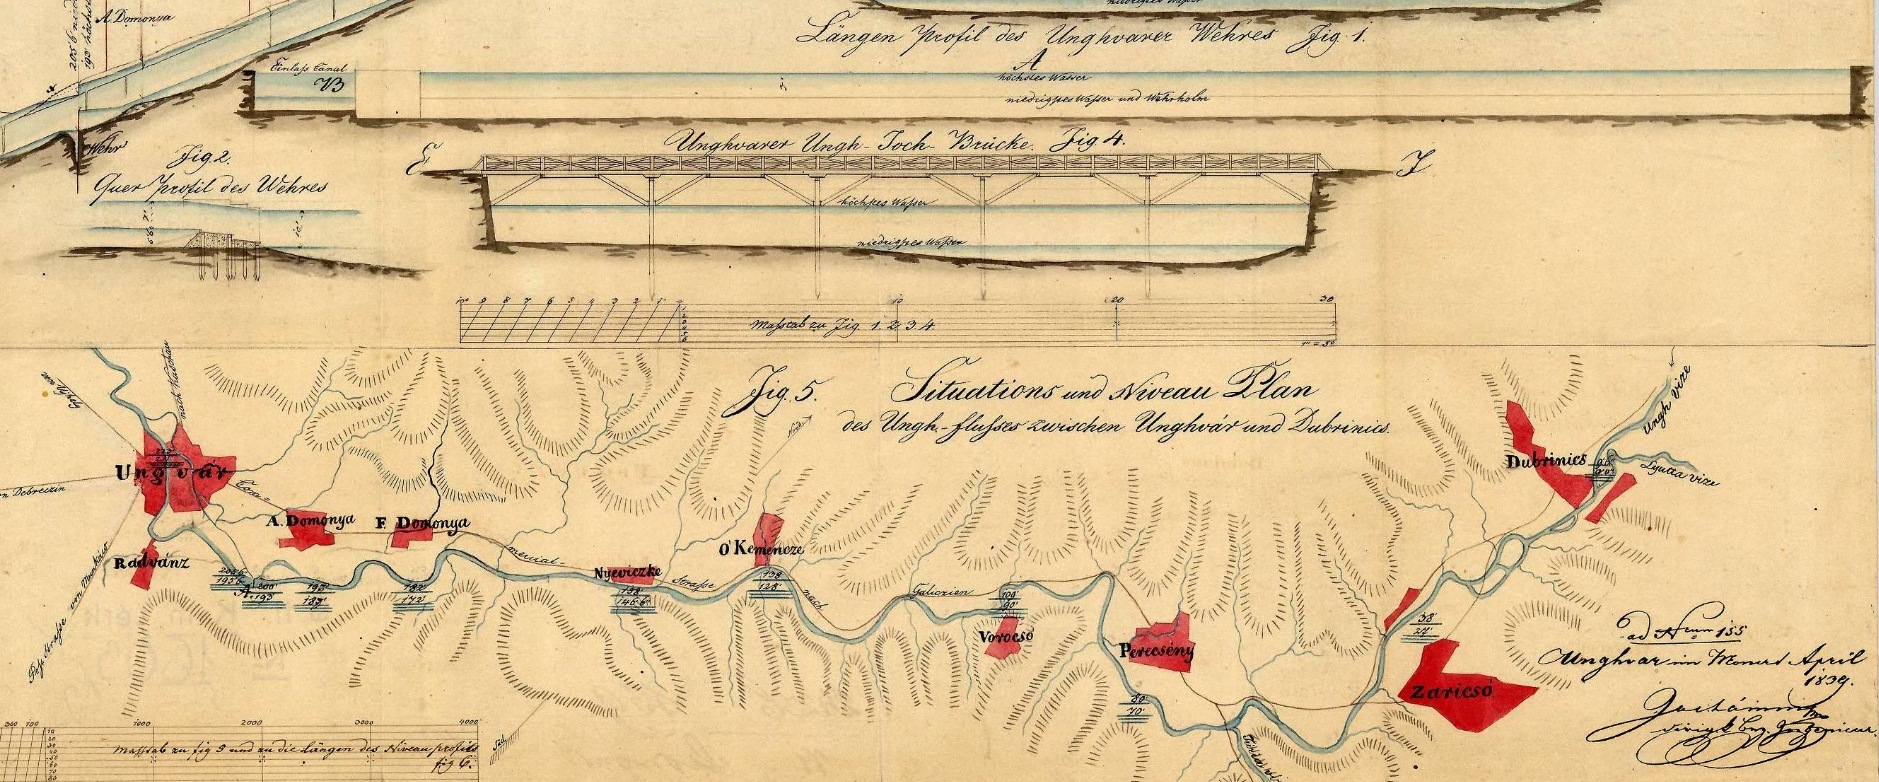 niedrigstes Wasser
Längen Profil des Unghvarer Wehres Fig. 1.
A. Domonya
Einlass Canal
B
A
höchstes Wasser
niedrigstes Wasser und Wehrholm
Wehr
Fig 2.
Quer Profil des Wehres
Unghvarer Ungh-Joch-Brücke. Fig 4.
E
F
höchstes Wasser
niedrigstes Wasser
10 9 8 7 6 5 4 3 2 1
10 20 30
Masstab zu Fig. 1. 2. 3. 4
Fig. 5. Situations und Niveau Plan
des Ungh-flusses zwischen Unghvár und Dubrinics.
nach Kaschau
Ungvár
von Debreczin
Com-
A. Domonya
F. Domonya
mercial-
Radvánz
von Munkács
Post Strasse
A.
200
193
182
172
Nyeviczke
Strasse
O' Kemencze
138
128
nach
Galicien
100
90
Vorocsó
Perecsény
80
70
38
Zaricsó
Dubrinics
Ungh vize
Lyutta vize
ad Num 155
Unghvar im Monat April
1839.
1000 2000 3000 4000
Masstab zu fig 5 und zu die Längen des Niveau profils
fig 6.